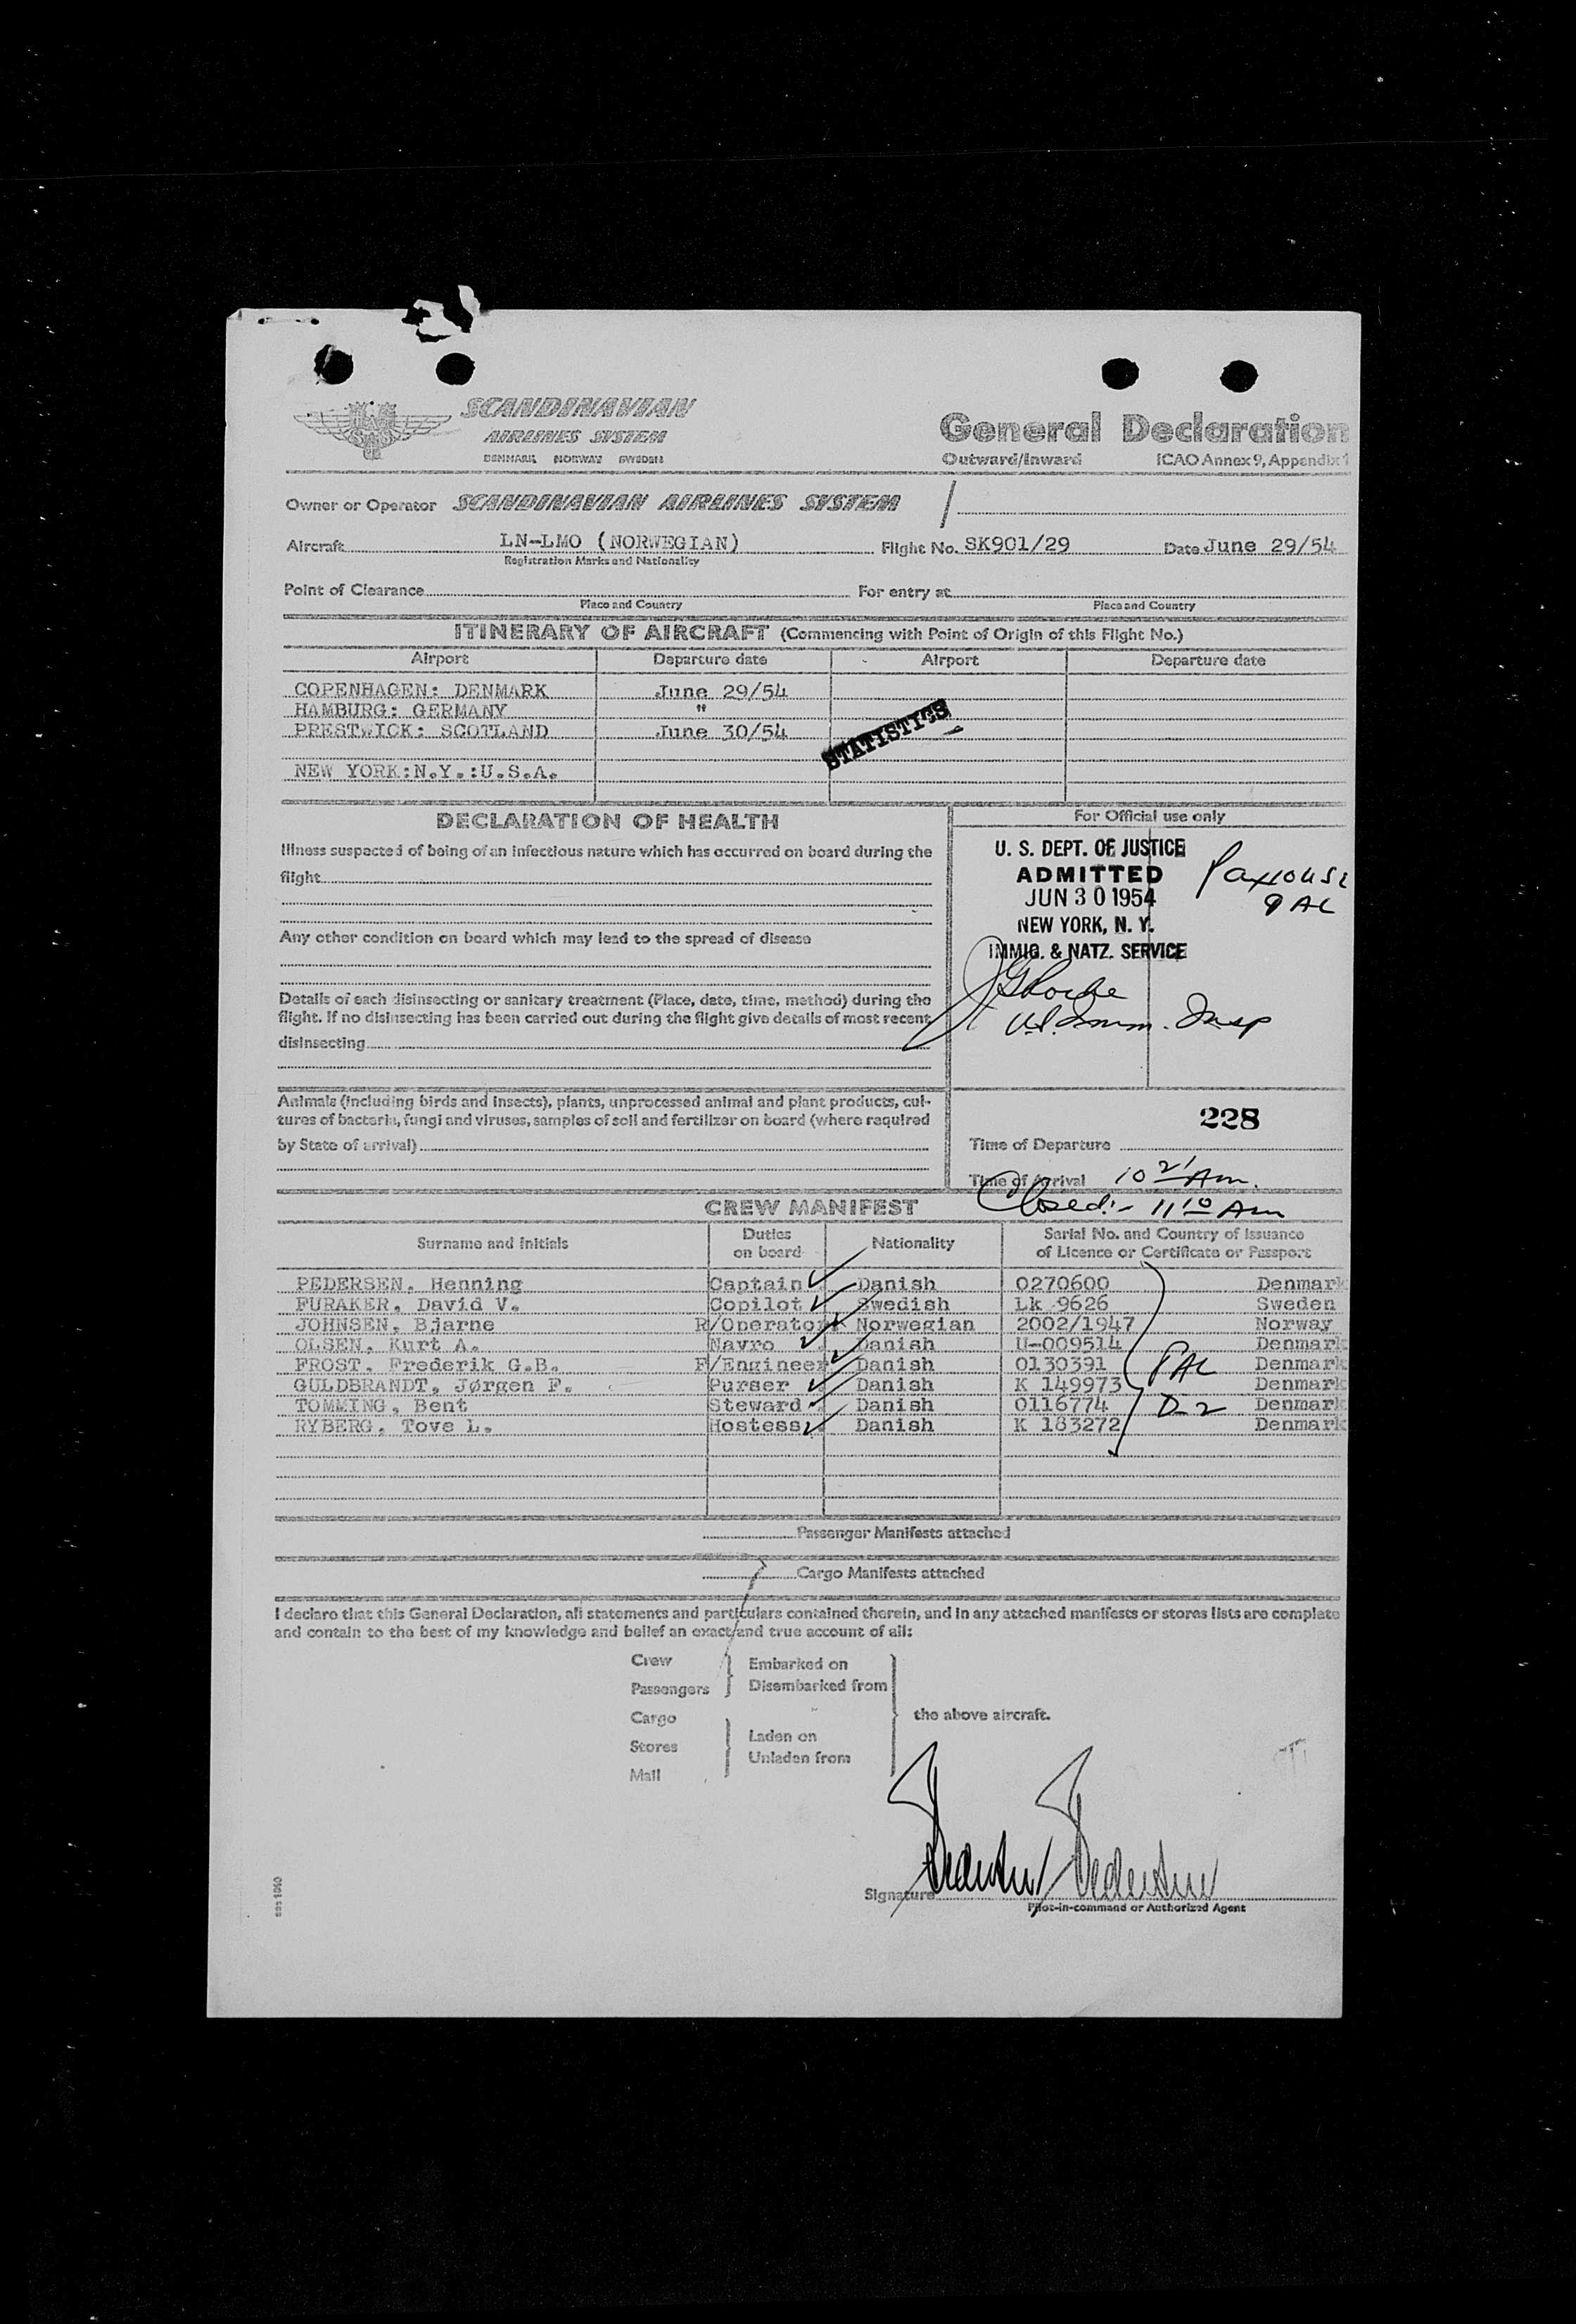 SCANDINAVIAN
AIRLINES SYSTEM
DENMARK NORWAY SWEDEN
General Declaration
Outward/Inward ICAO Annex 9, Appendix 1
Owner or Operator SCANDINAVIAN AIRLINES SYSTEM /
Aircraft LN-LMO (NORWEGIAN) Flight No. SK901/29 Date June 29/54
Registration Marks and Nationality
Point of Clearance For entry at
Place and Country Place and Country
ITINERARY OF AIRCRAFT (Commencing with Point of Origin of this Flight No.)
Airport Departure date Airport Departure date
COPENHAGEN: DENMARK June 29/54
HAMBURG: GERMANY "
PRESTWICK: SCOTLAND June 30/54
STATISTICS
NEW YORK:N.Y.:U.S.A.
DECLARATION OF HEALTH
Illness suspected of being of an infectious nature which has occurred on board during the
flight
Any other condition on board which may lead to the spread of disease
Details of each disinsecting or sanitary treatment (Place, date, time, method) during the
flight. If no disinsecting has been carried out during the flight give details of most recent
disinsecting
Animals (including birds and insects), plants, unprocessed animal and plant products, cul-
tures of bacteria, fungi and viruses, samples of soil and fertilizer on board (where required
by State of arrival)
For Official use only
U. S. DEPT. OF JUSTICE
ADMITTED
JUN 30 1954
NEW YORK, N. Y.
IMMIG. & NATZ. SERVICE
U.S. Imm. Insp
228
Time of Departure
Time of Arrival 10 21 Am.
Closed:- 11 10 Am
CREW MANIFEST
Surname and initials Duties on board Nationality Serial No. and Country of Issuance of Licence or Certificate or Passport
PEDERSEN, Henning Captain Danish 0270600 Denmark
FURAKER, David V. Copilot Swedish Lk 9626 Sweden
JOHNSEN, Bjarne R/Operator Norwegian 2002/1947 Norway
OLSEN, Kurt A. Navro Danish U-009514 Denmark
FROST, Frederik G.B. F/Engineer Danish 0130391 Denmark
GULDBRANDT, Jørgen F. Purser Danish K 149973 Denmark
TOMMING, Bent Steward Danish 0116774 Denmark
RYBERG, Tove L. Hostess Danish K 183272 Denmark
D-2
Passenger Manifests attached
Cargo Manifests attached
I declare that this General Declaration, all statements and particulars contained therein, and in any attached manifests or stores lists are complete
and contain to the best of my knowledge and belief an exact and true account of all:
Crew
Passengers
Embarked on
Disembarked from
Cargo
Stores
Mail
Laden on
Unladen from
the above aircraft.
Signature
Pilot-in-command or Authorized Agent